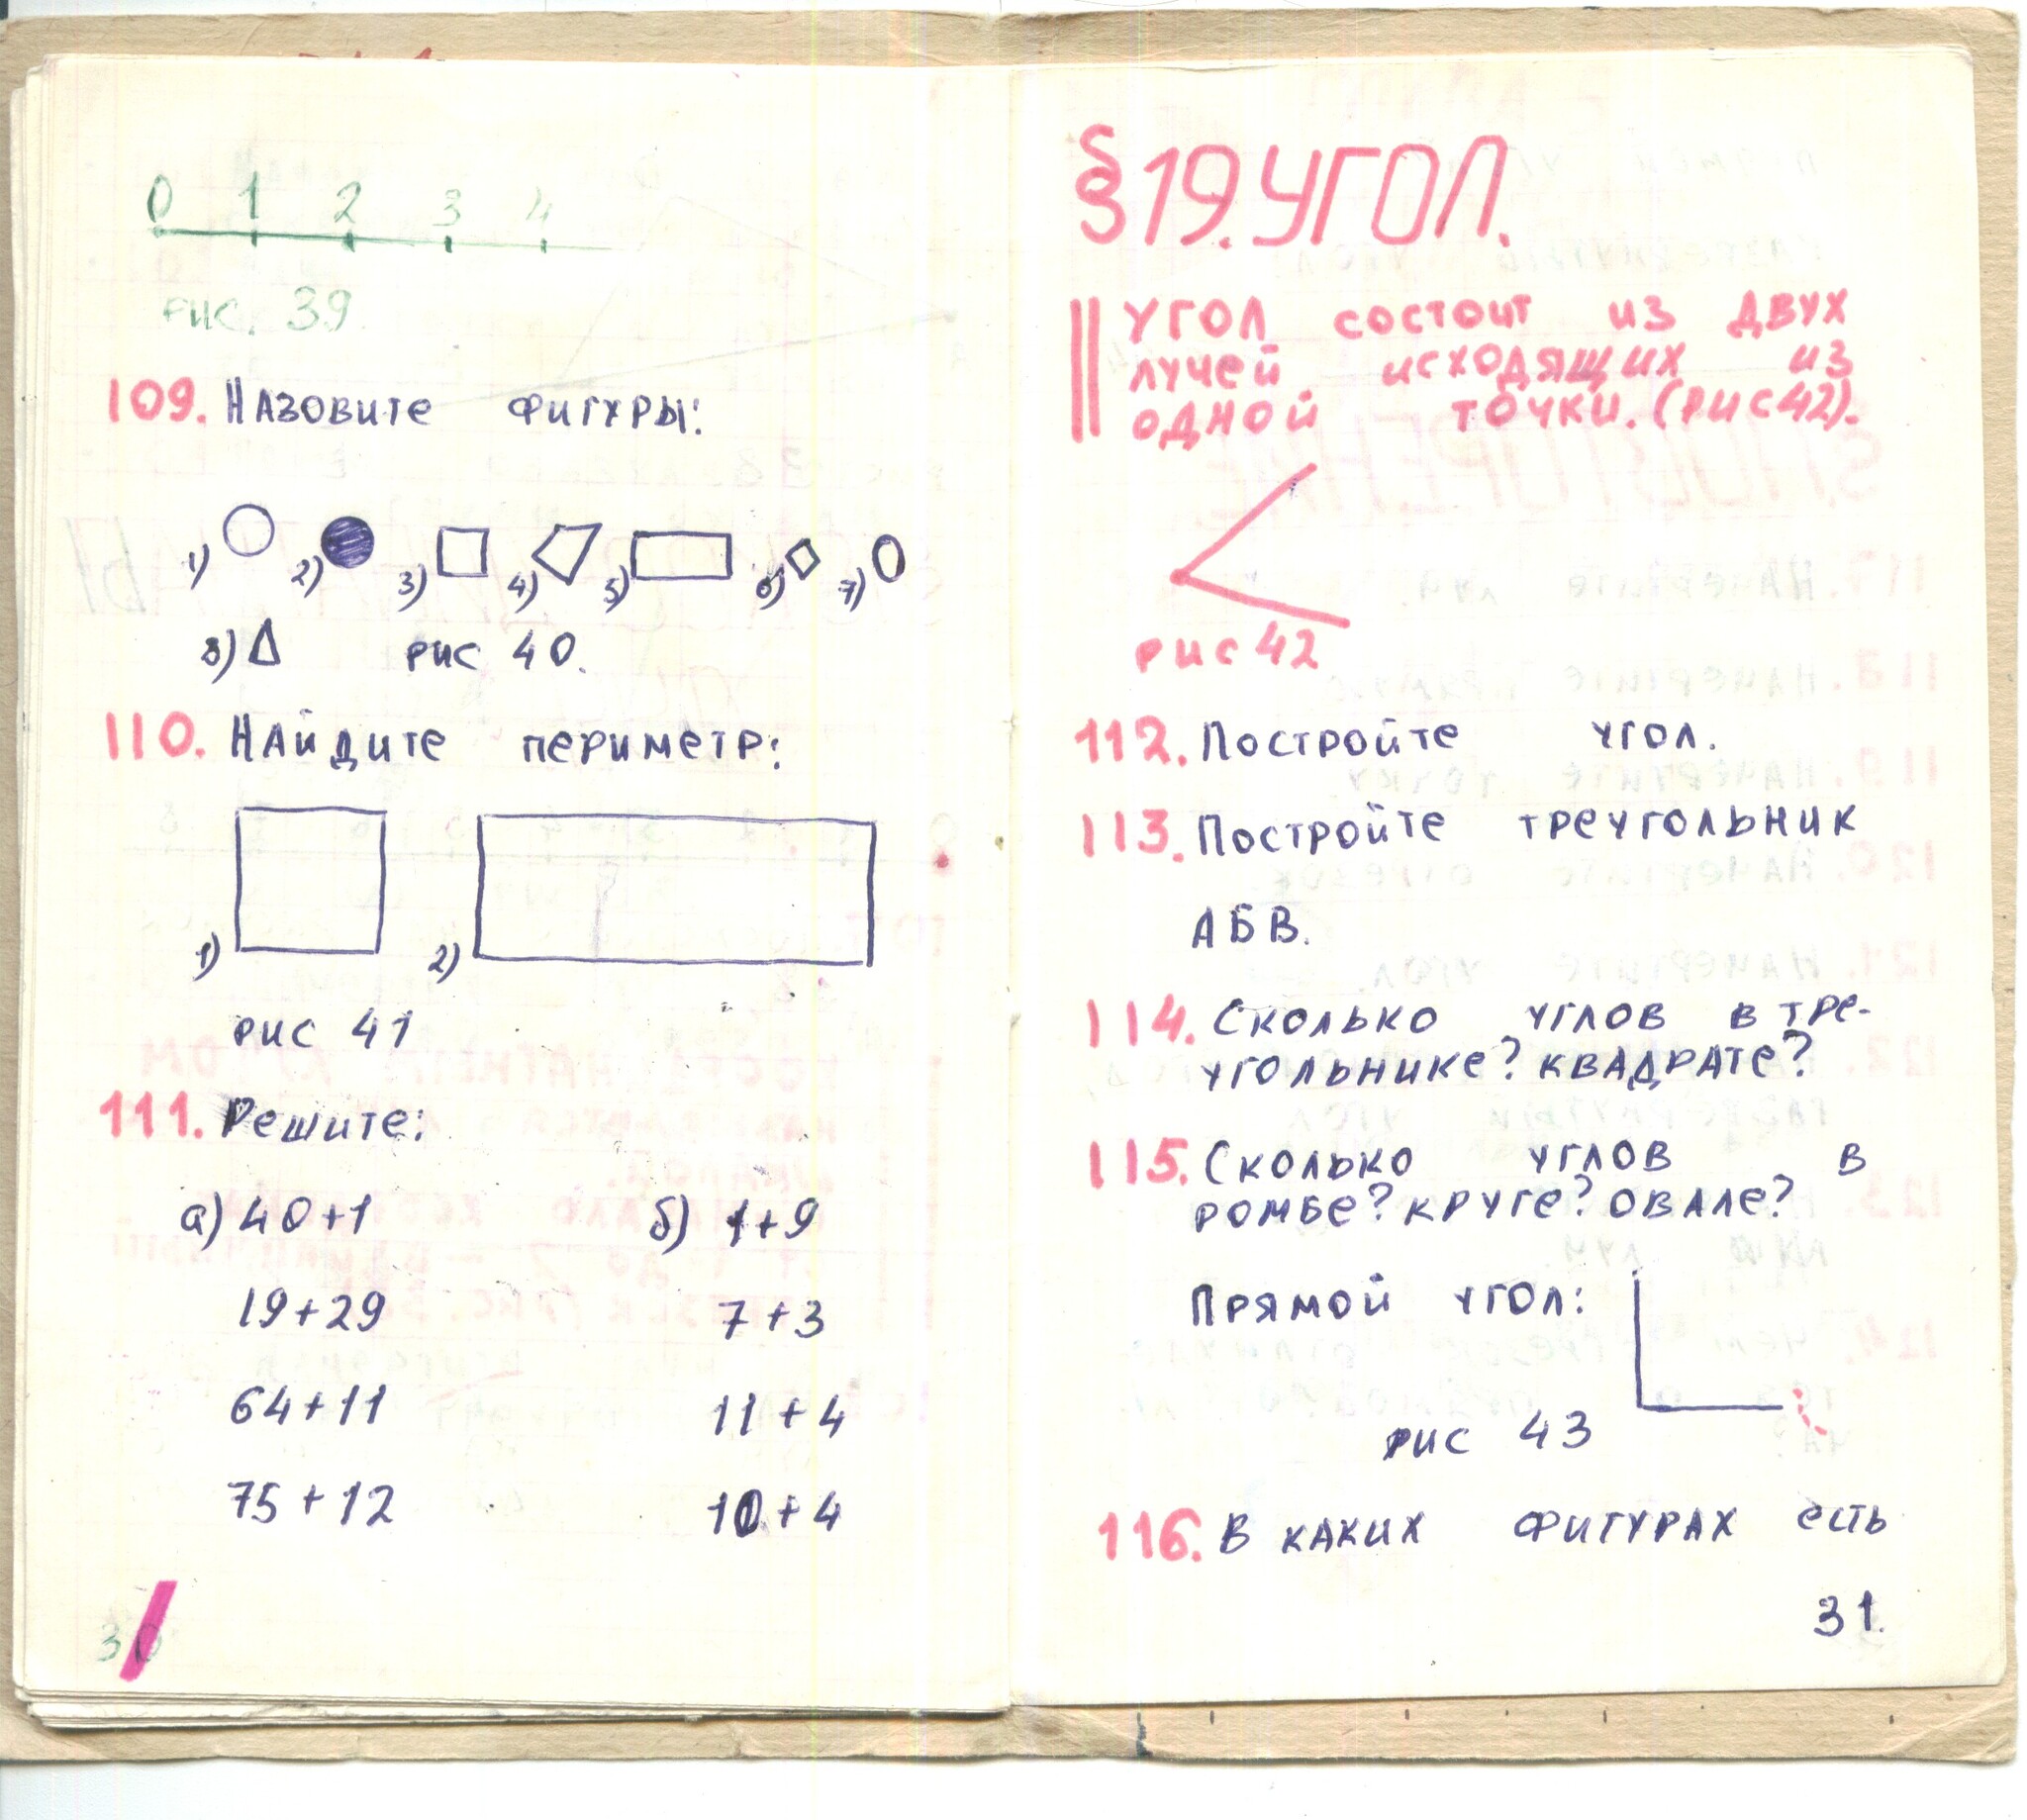 0 1 2 3 4
рис. 39
109. Назовите фигуры:
1) 2) 3) 4) 5) 6) 7)
8) рис 40.
110. Найдите периметр:
1) 2)
рис 41
111. Решите:
а) 40+1 б) 1+9
19+29 7+3
64+11 11+4
75+12 10+4
30
§19. УГОЛ.
Угол состоит из двух
лучей исходящих из
одной точки. (рис42).
рис 42
112. Постройте угол.
113. Постройте треугольник
АБВ.
114. Сколько углов в тре-
угольнике? квадрате?
115. Сколько углов в
ромбе? круге? овале?
Прямой угол:
рис 43
116. В каких фигурах есть
31.